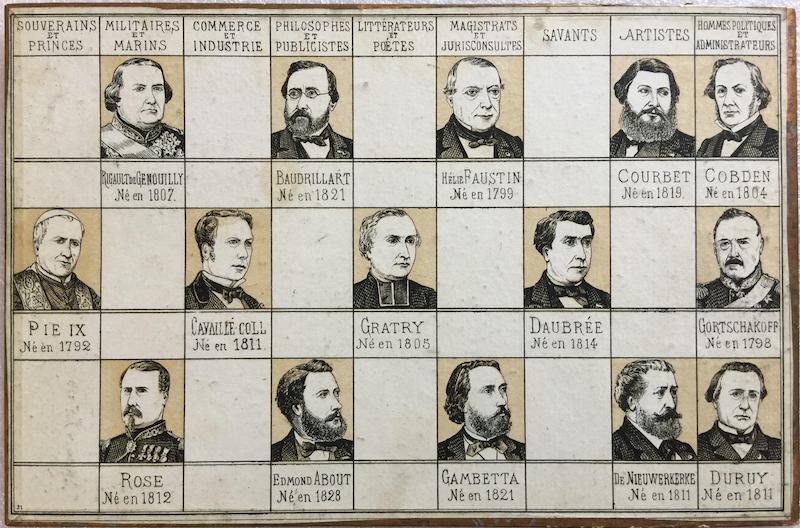 SOUVERAINS
ET
PRINCES
MILITAIRES
ET
MARINS
COMMERCE
ET
INDUSTRIE
PHILOSOPHES
ET
PUBLICISTES
LITTÉRATEURS
ET
POÈTES
MAGISTRATS
ET
JURISCONSULTES
SAVANTS
ARTISTES
HOMMES POLITIQUES
ET
ADMINISTRATEURS
RIGAULT DE GENOUILLY
Né en 1807.
BAUDRILLART
Né en 1821
HÉLIE FAUSTIN
Né en 1799
COURBET
Né en 1819.
COBDEN
Né en 1804
PIE IX
Né èn 1792
CAVAILLÉ-COLL
Né en 1811
GRATRY
Né en 1805
DAUBRÉE
Né en 1814
GORTSCHAKOFF
Né en 1798
ROSE
Né en 1812
EDMOND ABOUT
Né en 1828
GAMBETTA
Né en 1821
DE NIEUWERKERKE
Né en 1811
DURUY
Né en 1811